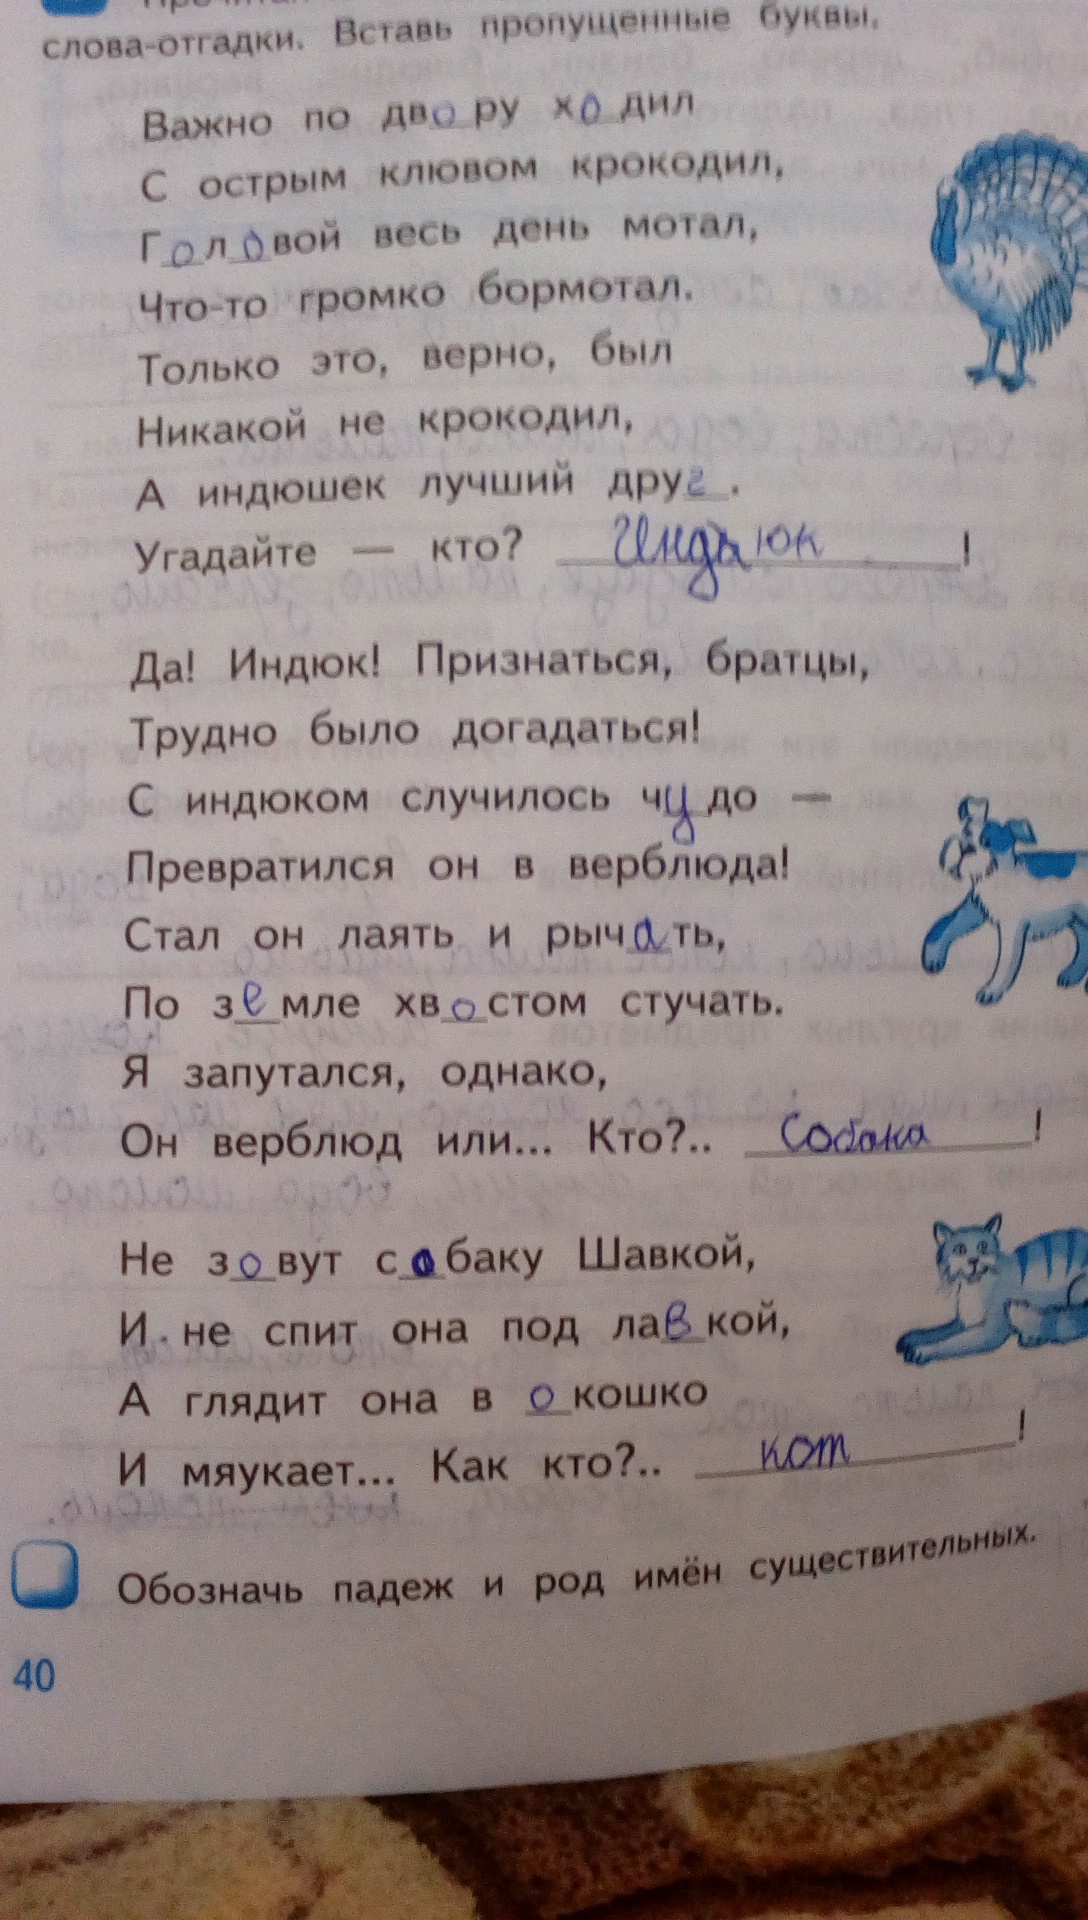 слова-отгадки. Вставь пропущенные буквы.
Важно по двору ходил
С острым клювом крокодил,
Головой весь день мотал,
Что-то громко бормотал.
Только это, верно, был
Никакой не крокодил,
А индюшек лучший друг.
Угадайте — кто? Индъюк!
Да! Индюк! Признаться, братцы,
Трудно было догадаться!
С индюком случилось чудо —
Превратился он в верблюда!
Стал он лаять и рычать,
По земле хвостом стучать.
Я запутался, однако,
Он верблюд или... Кто?.. Собака!
Не зовут собаку Шавкой,
И не спит она под лавкой,
А глядит она в окошко
И мяукает... Как кто?.. кот!
Обозначь падеж и род имён существительных.
40